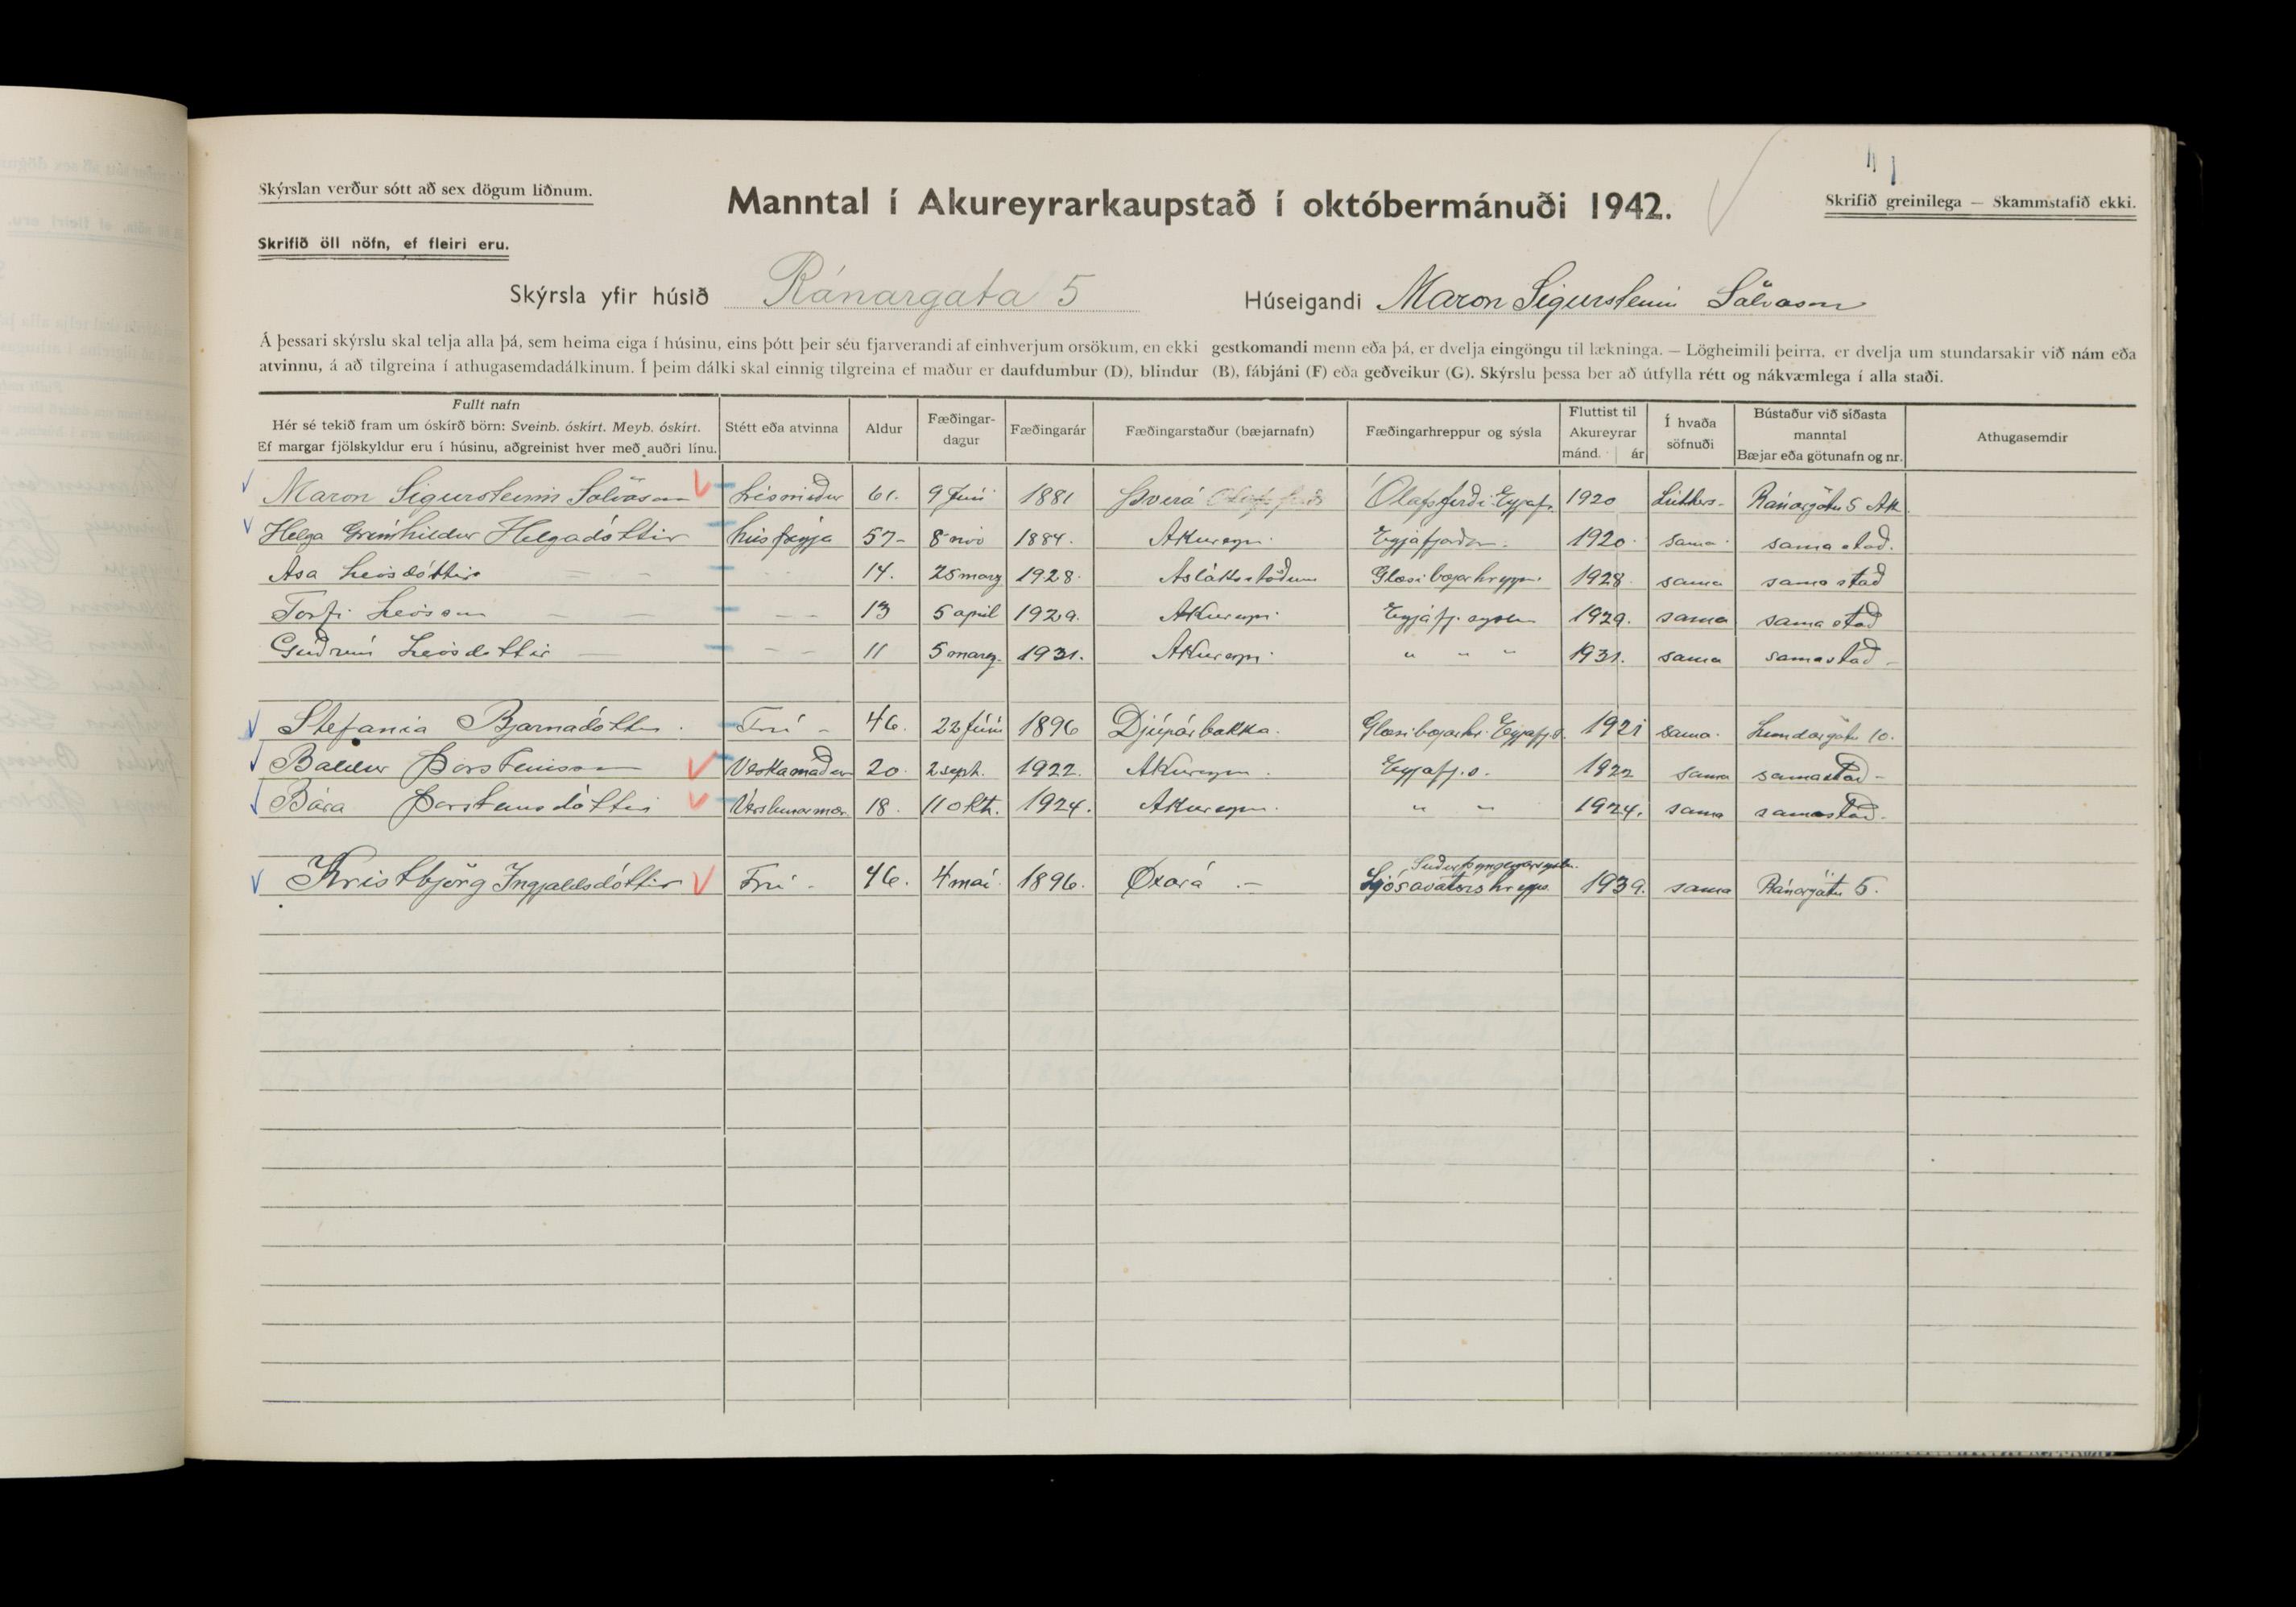 Skýrslan verður sótt að sex dögum liðnum.
Manntal í Akureyrarkaupstað í októbermánuði 1942.
Skrifið greinilega — Skammstafið ekki.
Skrifið öll nöfn, ef fleiri eru.
Skýrsla yfir húsið Ránargata 5 Húseigandi Maron Sigursteinn Sölvason
Á þessari skýrslu skal telja alla þá, sem heima eiga í húsinu, eins þótt þeir séu fjarverandi af einhverjum orsökum, en ekki gestkomandi menn eða þá, er dvelja eingöngu til lækninga. — Lögheimili þeirra, er dvelja um stundarsakir við nám eða
atvinnu, á að tilgreina í athugasemdadálkinum. Í þeim dálki skal einnig tilgreina ef maður er daufdumbur (D), blindur (B), fábjáni (F) eða geðveikur (G). Skýrslu þessa ber að útfylla rétt og nákvæmlega í alla staði.
Fullt nafn
Hér sé tekið fram um óskírð börn: Sveinb. óskírt. Meyb. óskírt.
Ef margar fjölskyldur eru í húsinu, aðgreinist hver með auðri línu.
Stétt eða atvinna
Aldur
Fæðingar-
dagur
Fæðingarár
Fæðingarstaður (bæjarnafn)
Fæðingarhreppur og sýsla
Fluttist til
Akureyrar
mánd. ár
Í hvaða
söfnuði
Bústaður við síðasta
manntal
Bæjar eða götunafn og nr.
Athugasemdir
Maron Sigursteinn Sölvason húsmiður 61. 9 Júní 1881 Þverá Ólafsfirði Eyjafj. 1920 Lúthers- Ránargötu 5 Ak
Helga Grímhildur Helgadóttir húsfreyja 57- 8 nóv 1884. Akureyri. Eyjafjarðar. 1920. sama. sama stað.
Asa Leósdóttir — — — — 14. 25 marz 1928. Aslákstöðum Glæsibæjarhreppi. 1928. sama sama stað
Torfi Leósson — — — — — 13 5 apríl 1929. Akureyri. Eyjafj. sýslu 1929. sama sama stað
Guðrún Leósdóttir — — — 11 5 marz. 1931. Akureyri. " " " 1931. sama sama stað -
Stefanía Bjarnadóttir. Frú - 46. 22 júní 1896 Djúpárbakka. Glæsibæjarhr. Eyjafj.s. 1921 sama. Lundargötu 10.
Baldur Þorsteinsson Verkamaður 20. 2 sept. 1922. Akureyri. Eyjafj.s. 1922 sama sama stað -
Bára Þorsteinsdóttir Verslunarmær. 18. 11 okt. 1924. Akureyri. " " 1924. sama sama stað.
Suðurþingeyjarsýslu.
Kristbjörg Ingjaldsdóttir Frú - 46. 4 maí 1896. Öxará .— Ljósavatnshrepp. 1939. sama Ránargötu 5.